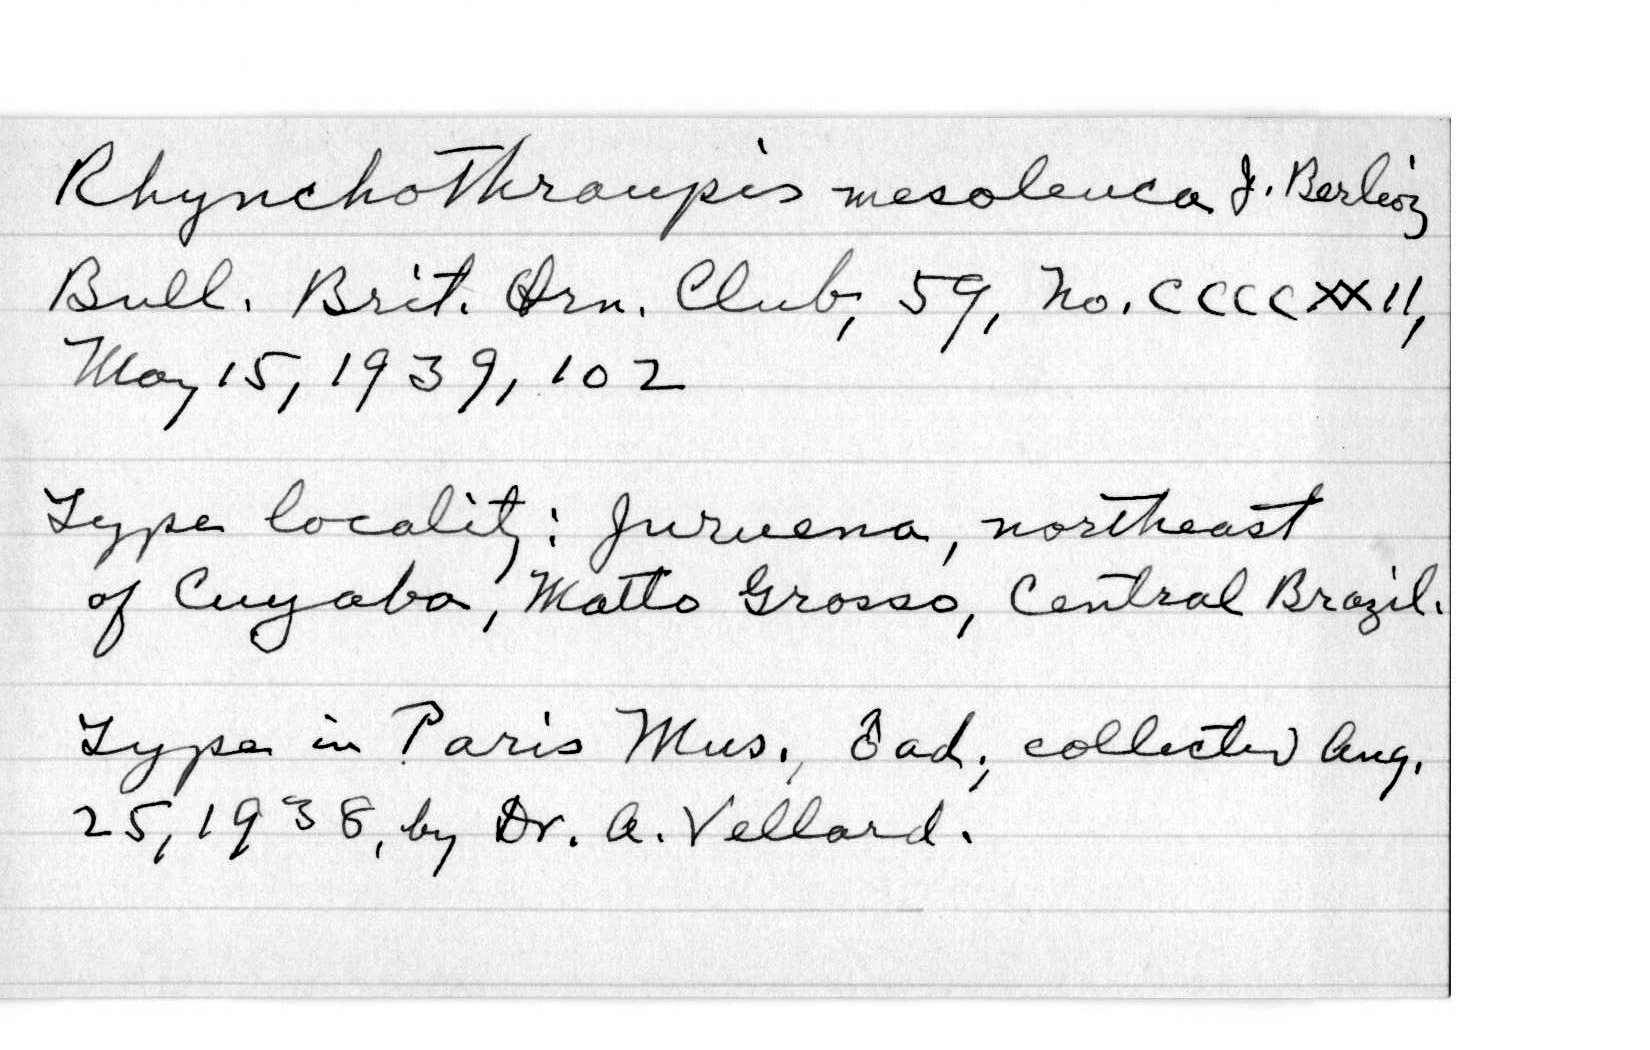 Rhynchothraupis mesoleuca J. Berlioz
Bull. Brit. Orn. Club, 59, No. CCCCXXII,
May 15, 1939, 102
Type locality: Juruena, northeast
of Cuyaba, Matto Grosso, Central Brazil.
Type in Paris Mus., ♂ ad., collected Aug.
25, 1938, by Dr. A. Vellard.